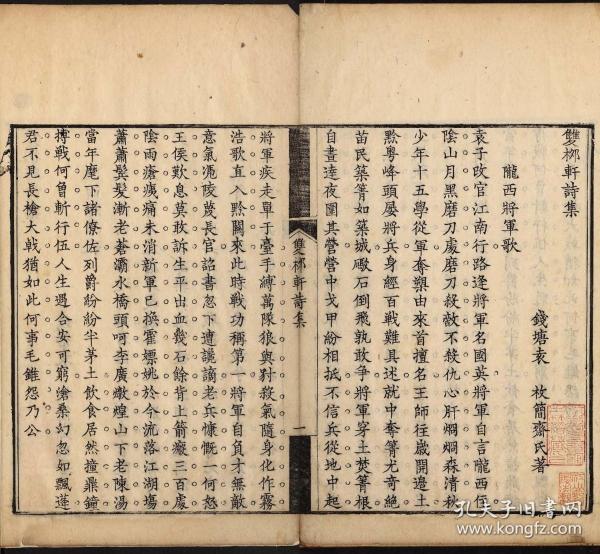 雙栁軒詩集
錢塘袁 枚簡齋氏著
隴西將軍歌
袁子改官江南行路逢將軍名國英將軍自言隴西住
陰山月黑磨刀處磨刀殺敵不殺仇心肝烱烱森清秋
少年十五學從軍奪槊由來首擅名王師往嵗開邉土
黔粤峰頭屡將兵身經百戰難具述就中奪箐尤奇絶
苗民築箐如築城礮石倒飛孰敢爭將軍穿土焚箐根
自晝逹夜圍其營營中戈甲紛相抵不信兵從地中起
雙栁軒詩集
一
將軍疾走單于臺手縛萬隊狼與豺殺氣隨身化作霧
浩歌直入黔關來此時戰功稱第一將軍自負才無敵
意氣凴陵蔑長官詔書忽下遭讁謫老兵慷慨一何怒
王侯歎息莫敢訴生平出血幾石餘背上箭瘢三百處
陰雨瘡痍痛未消新軍已換霍嫖姚於今流落江湖塲
蕭蕭鬂髮漸老蒼灞水橋頭呵李廣燉煌山下老陳湯
當年麾下諸僚佐列爵紛紛半茅土飲食居然撞鼎鐘
搏戰何曾斬行伍人生遇合安可窮滄桑幻忽如飄蓬
君不見長槍大戟猶如此何事毛錐怨乃公
孔夫子旧书网
www.kongfz.com